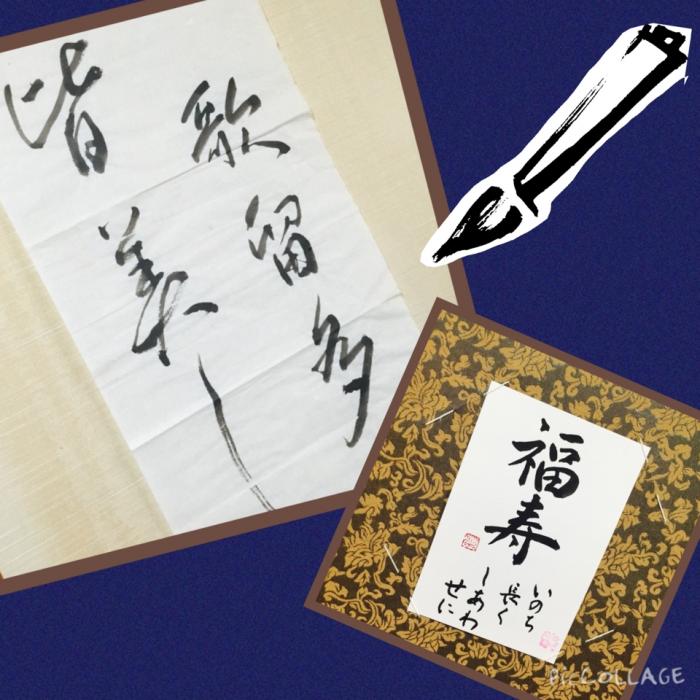 歌留多
皆美し
福寿
いのち
長く
しあわ
せに
PIC COLLAGE